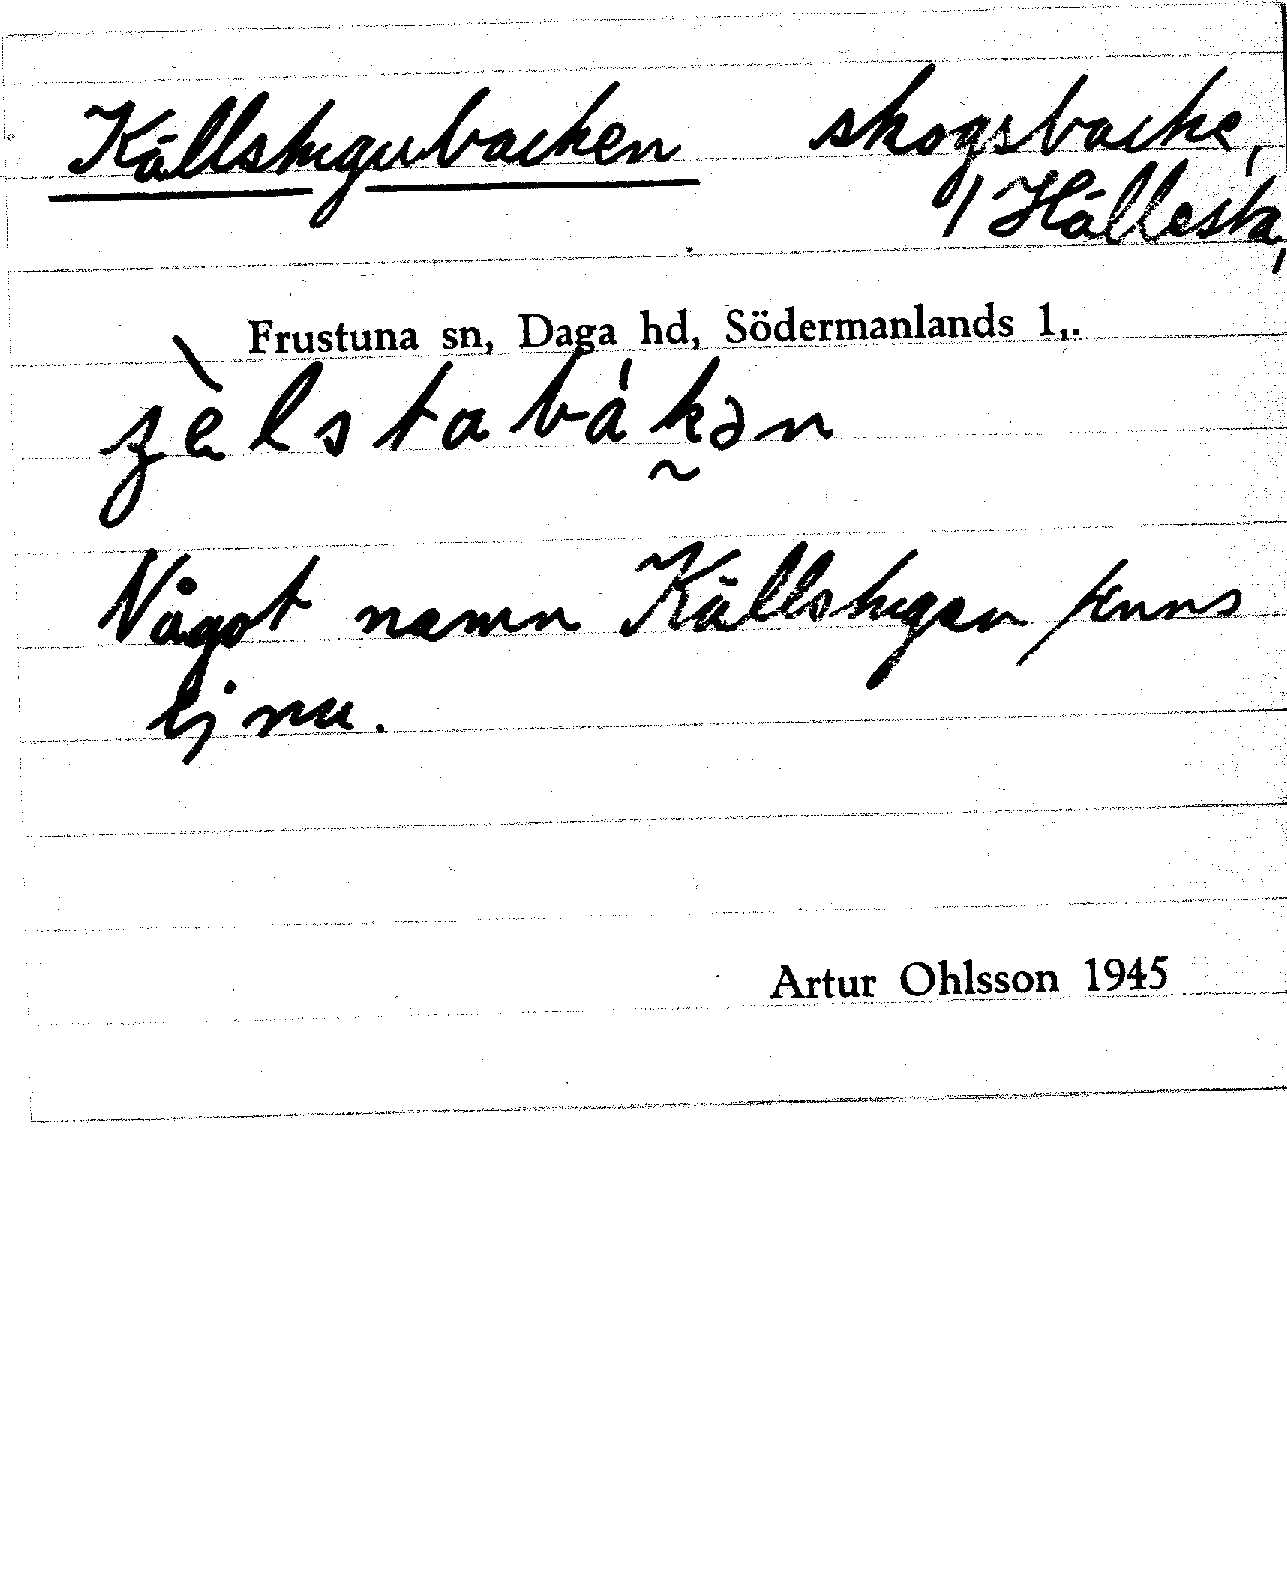 Källstugubacken skogsbacke,
/ Hållesta,
Frustuna sn, Daga hd, Södermanlands l,.
Något namn Källstugan finns
ej nu.
Artur Ohlsson 1945